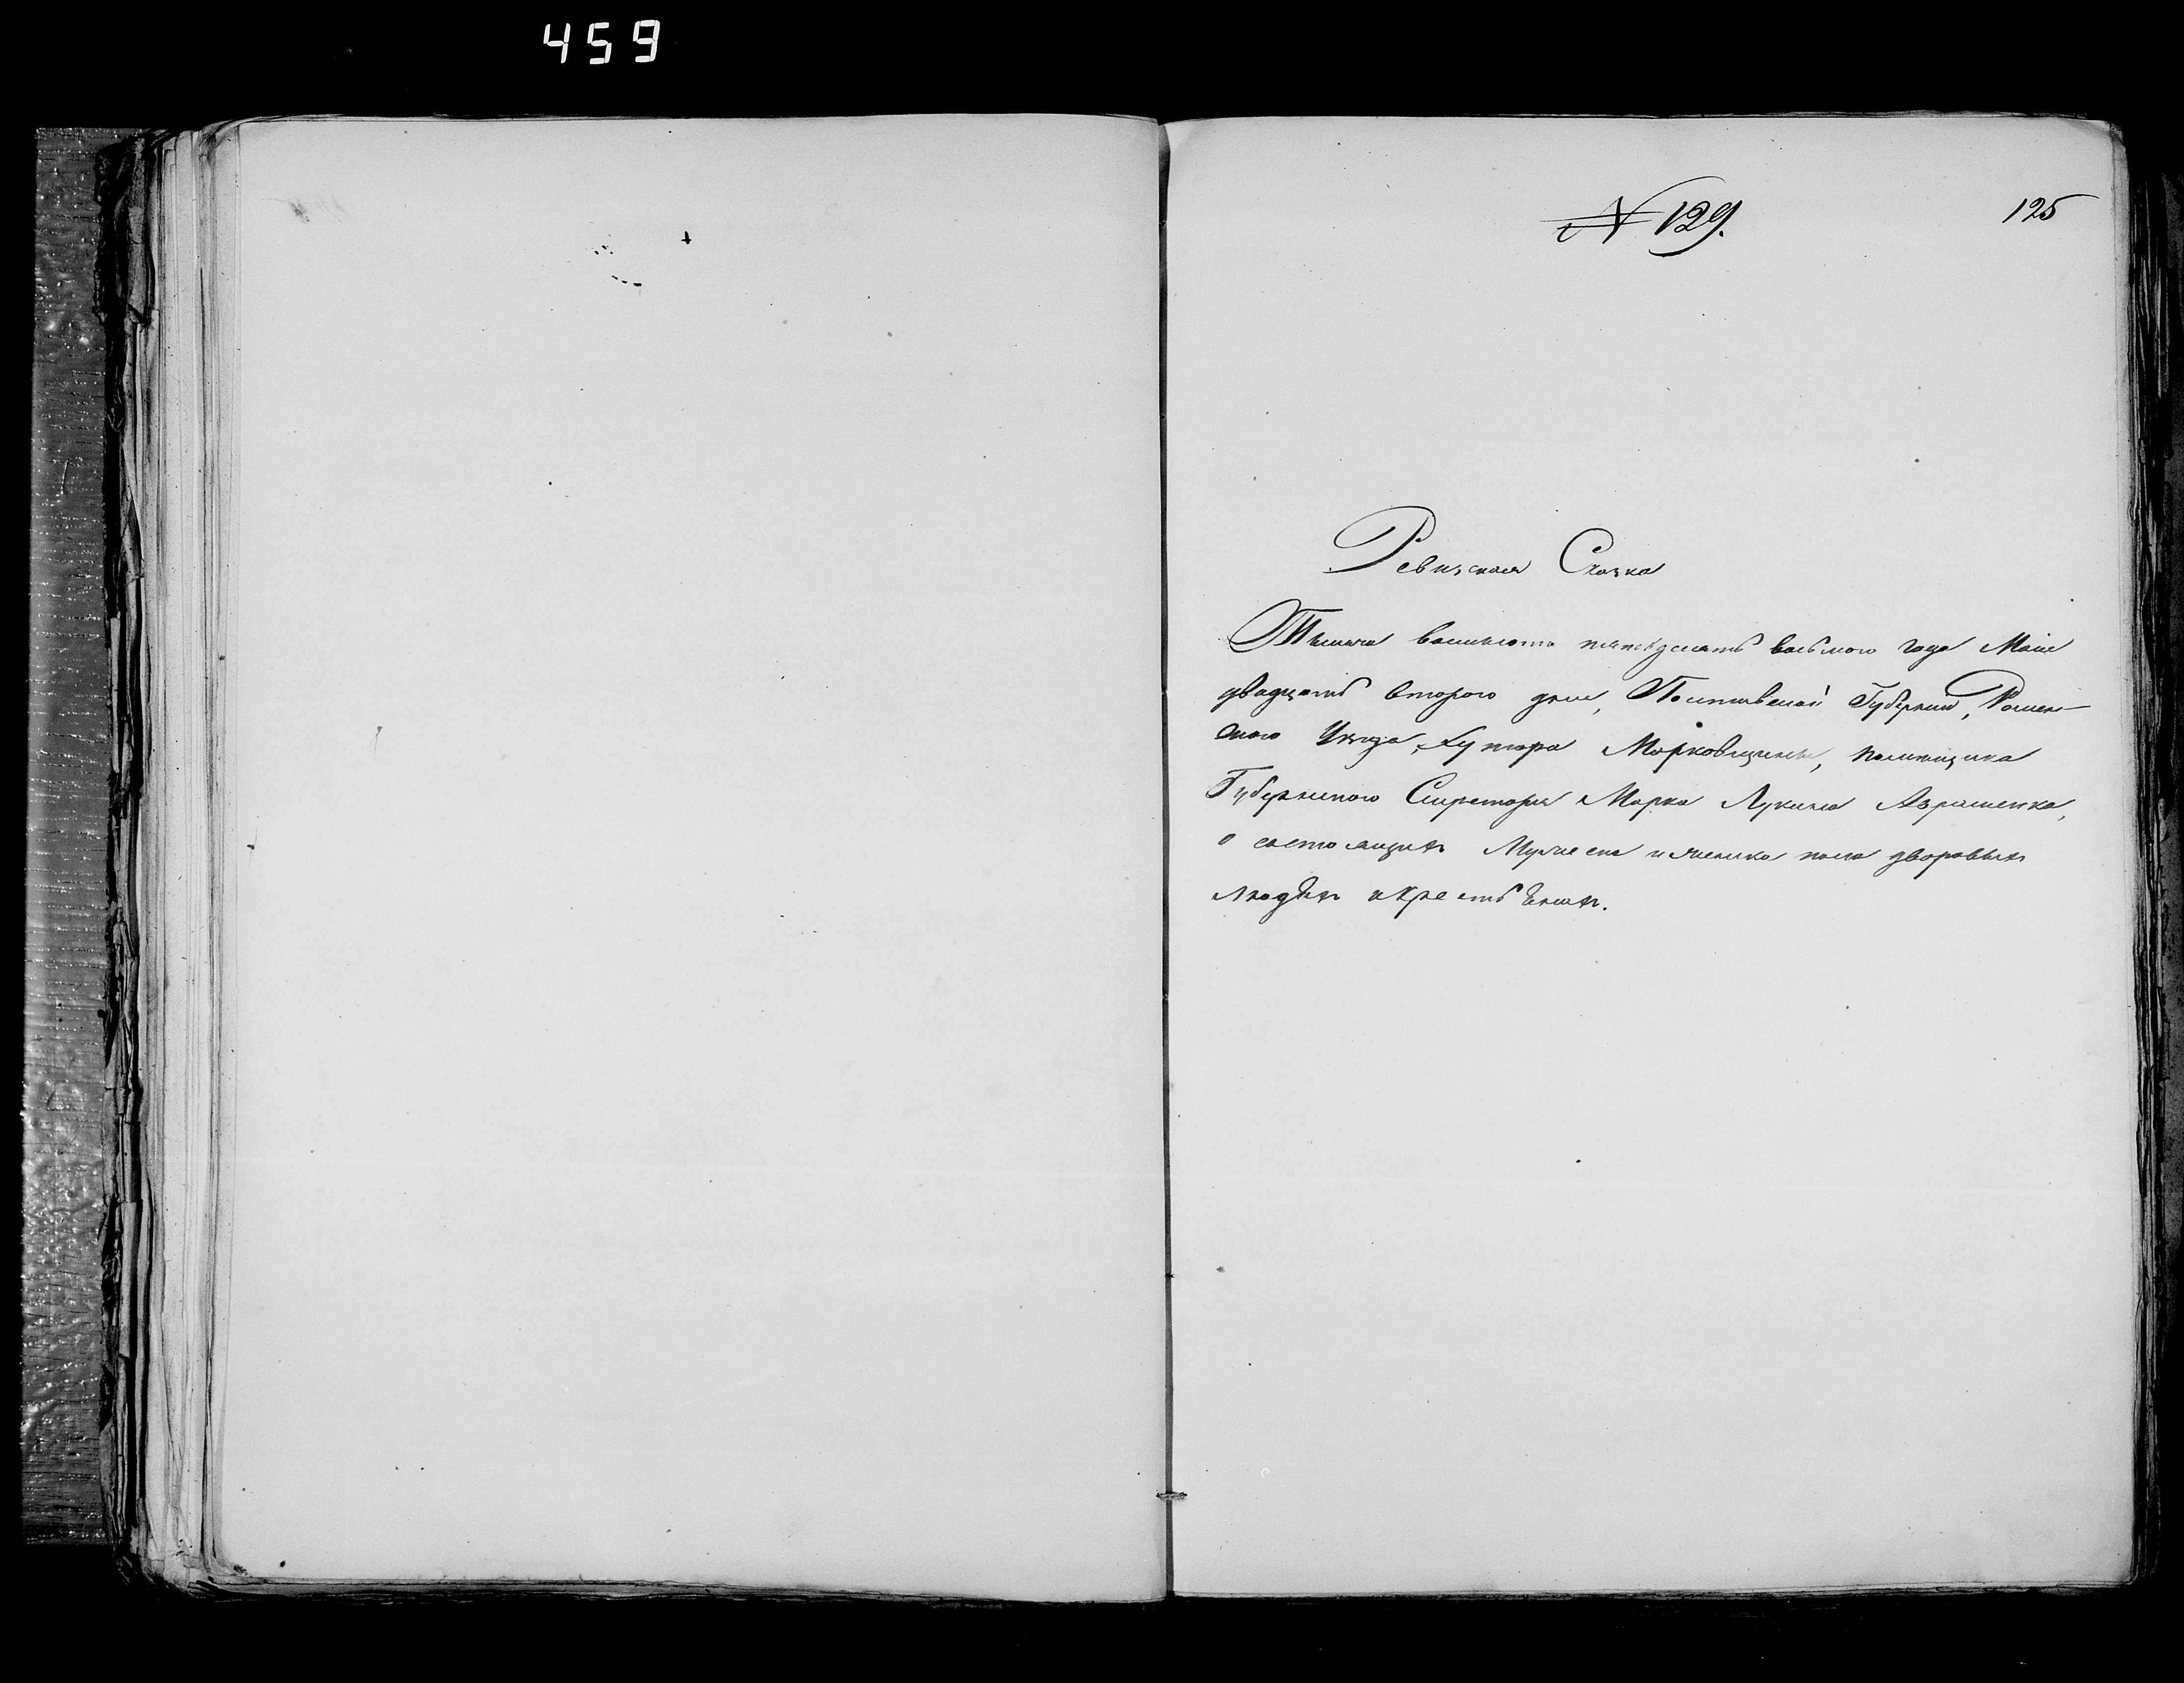 459
№ 129.
125
Ревизская Сказка
Тысяча восемьсотъ пятьдесятъ восьмого года Маія
двадцать второго дня, Полтавской Губерніи, Ромен-
ского Уезда, хутора Марковщины, помещика
Губернского Секретаря Марка Лукича
о состоящихъ Мужеска и женска пола дворовыхъ
людѣхъ и крестьянахъ.